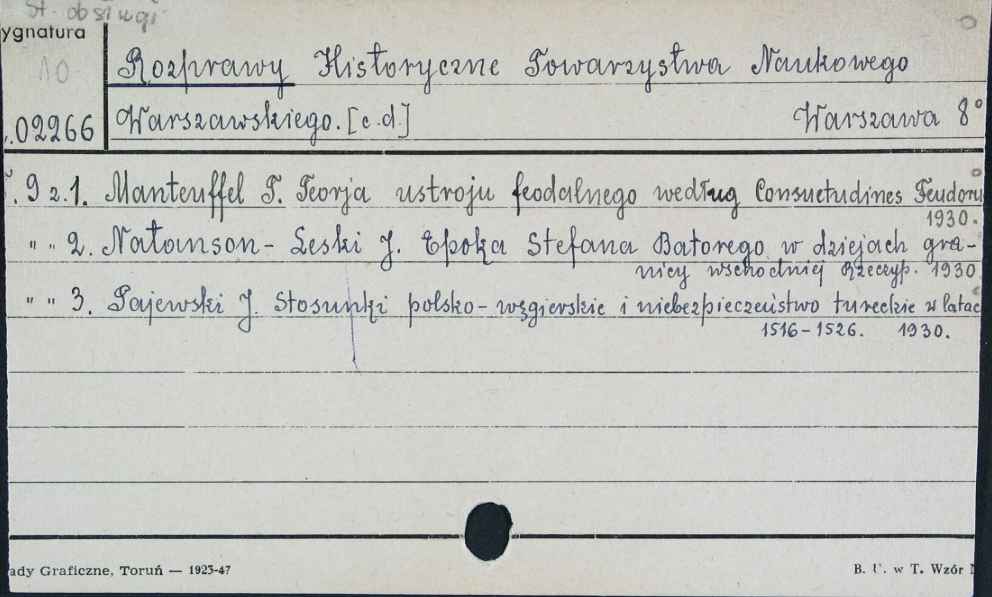 st. obsługi
ygnatura
10
02266
Rozprawy Historyczne Towarzystwa Naukowego
Warszawskiego. [c.d.] Warszawa 8°
. 9 z.1. Manteuffel T. Teorja ustroju feodalnego według Consuetudines Feudoru
1930.
" " 2. Natanson-Leski J. Epoka Stefana Batorego w dziejach gra-
nicy wschodniej Rzeczyp. 1930
" " 3. Pajewski J. Stosunki polsko-węgierskie i niebezpieczeństwo tureckie w latac
1516-1526. 1930.
ady Graficzne, Toruń — 1925-47
B. U. w T. Wzór